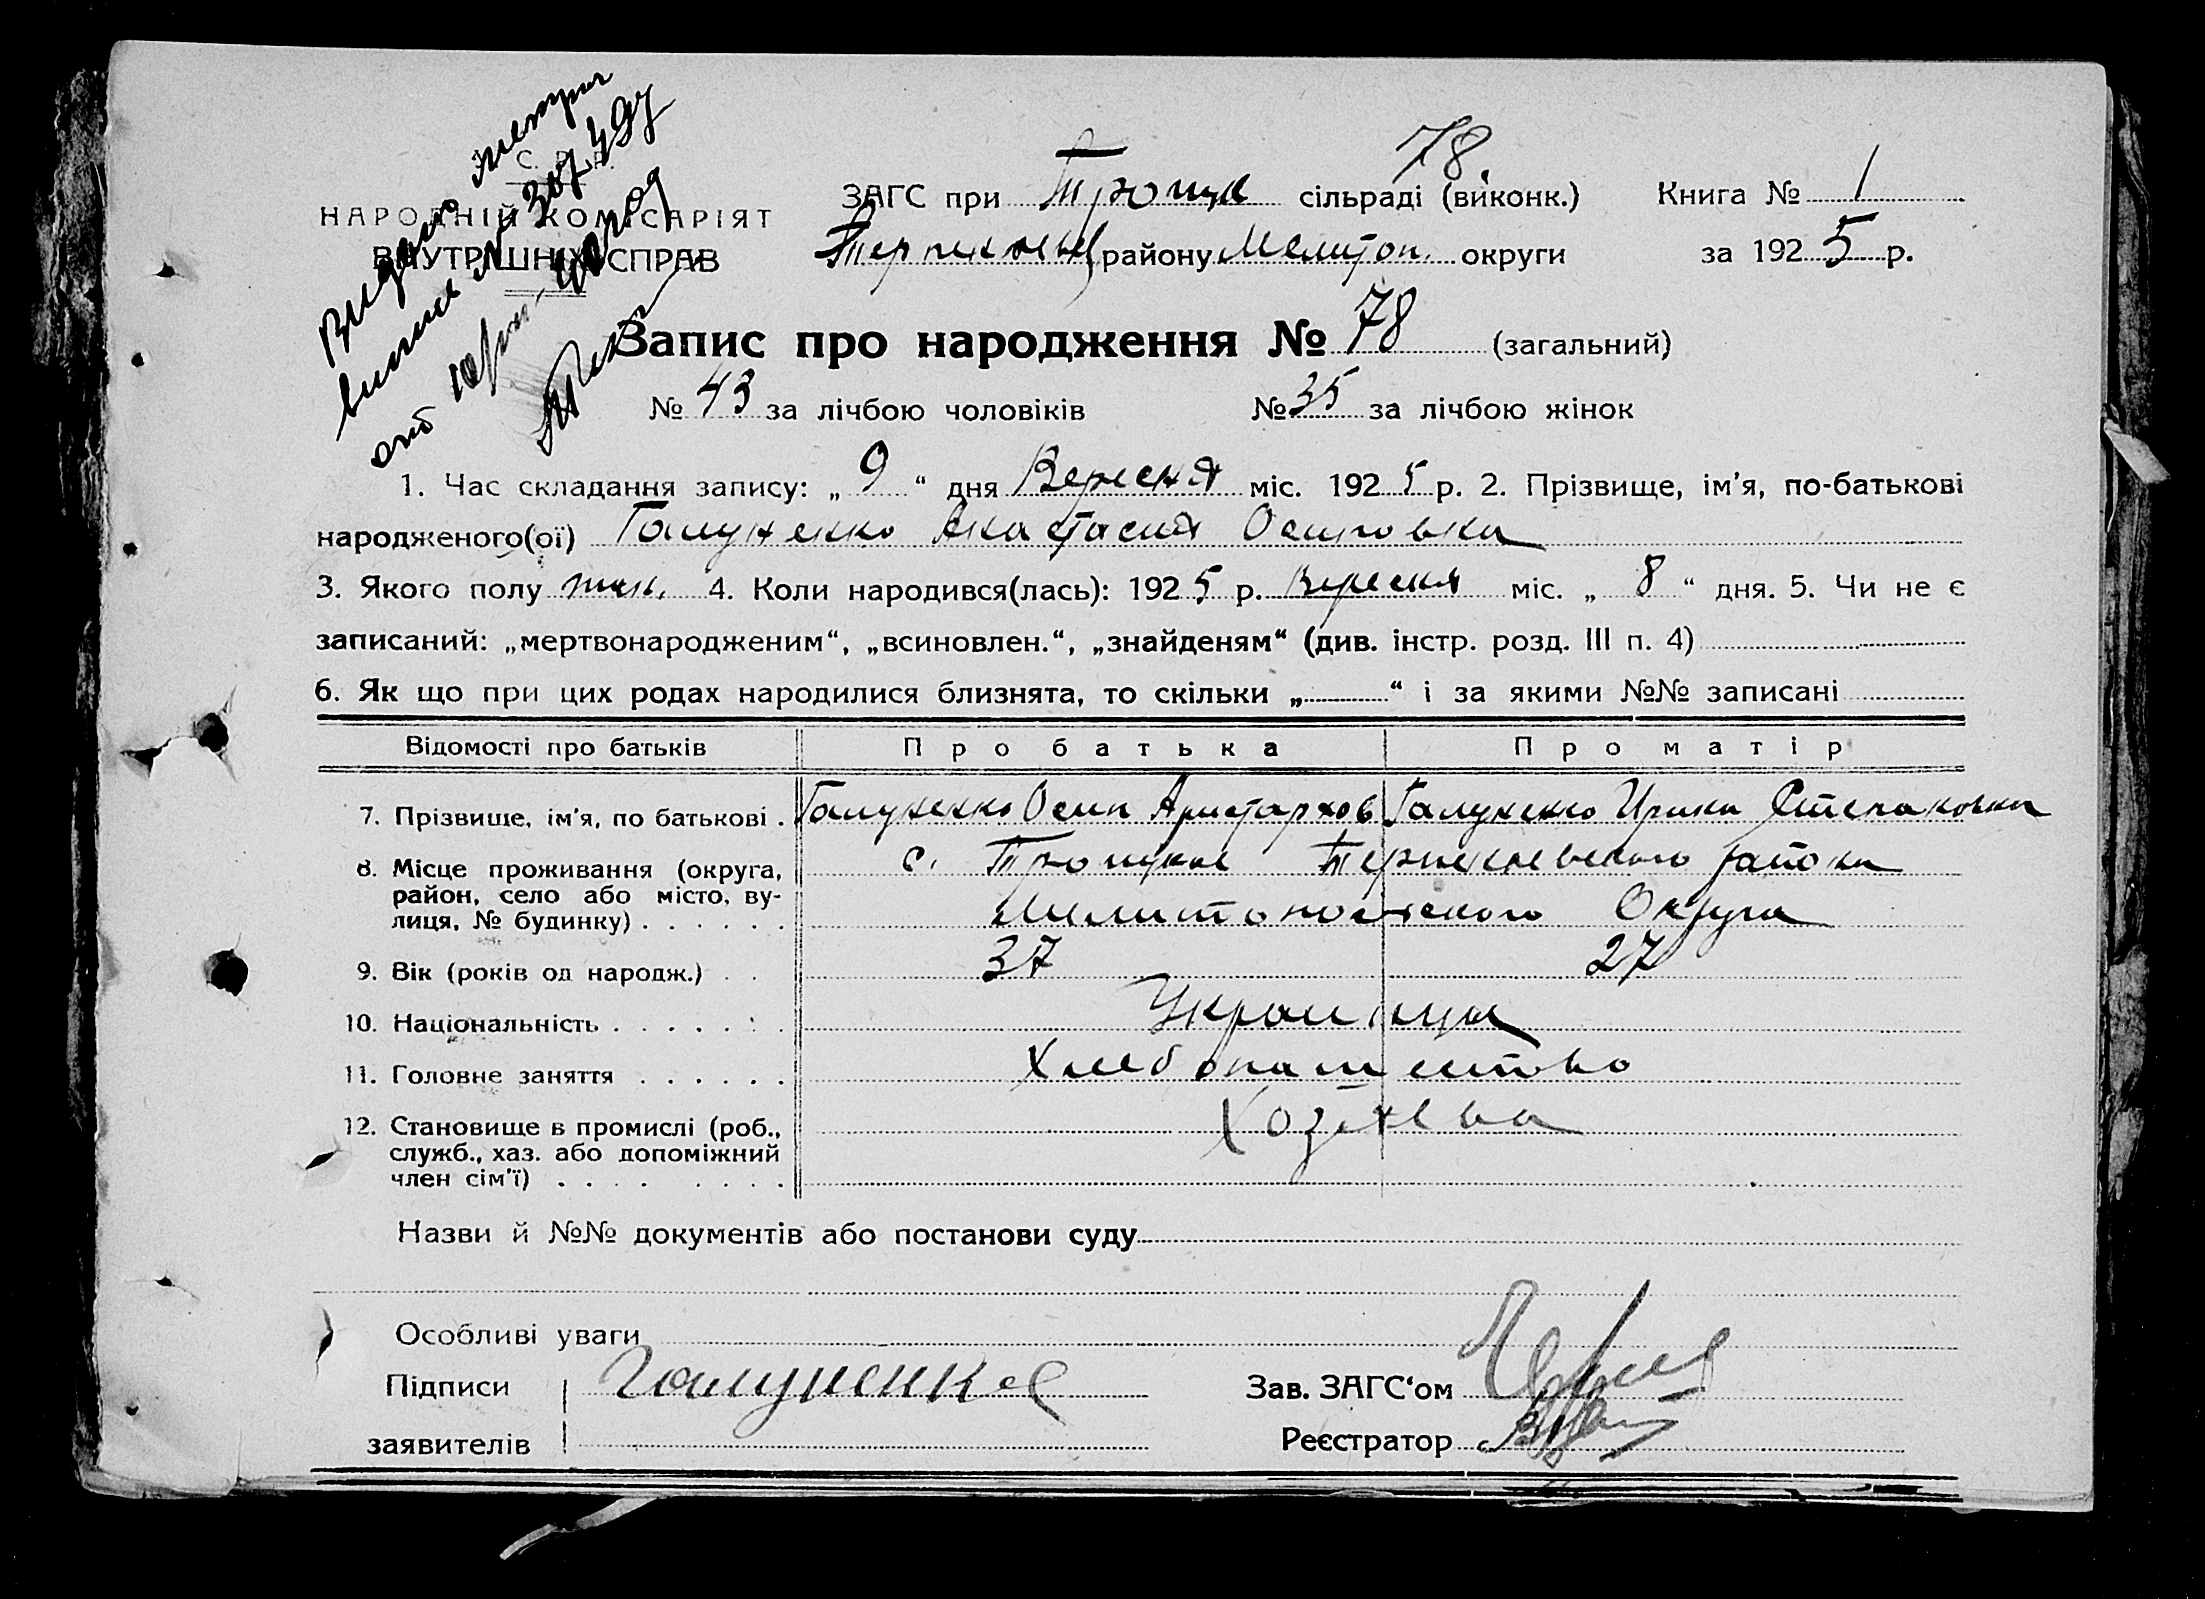 Видано метри
С. Р. Р.
НАРОДНІЙ КОМІСАРІЯТ
ВНУТРІШНІХ СПРАВ
ЗАГС при Троицк сільраді (виконк.) 78. Книга № 1
району Мелитоп. округи за 1925 р.
Запис про народження № 78 (загальний)
№ 43 за лічбою чоловіків № 35 за лічбою жінок
1. Час складання запису: „ 9 “ дня Вересня міс. 1925 р. 2. Прізвище, ім'я, по-батькові
народженого(ої) Галуненко Анастасия Осиповна
3. Якого полу жен. 4. Коли народився(лась): 1925 р. Вересня міс. „ 8 “ дня. 5. Чи не є
записаний: „мертвонародженим“, „всиновлен.“, „знайденям“ (див. інстр. розд. III п. 4)
6. Як що при цих родах народилися близнята, то скільки „ “ і за якими №№ записані
Відомості про батьків Про батька Про матір
7. Прізвище, ім'я, по батькові . Галуненко Осип Аристархов Галуненко Ирина Степановна
8. Місце проживання (округа, с. Троицкое района
район, село або місто, ву-
лиця, № будинку) . . . . . . Мелитопольского Округа
9. Вік (років од народж.) . . 37 27
10. Національність . . . . . . . Украинцы
11. Головне заняття . . . . . . Хлебопашество
12. Становище в промислі (роб., Хозяева
служб., хаз. або допоміжний
член сім'ї) . . . . . . . .
Назви й №№ документів або постанови суду
Особливі уваги
Підписи Галуненко Зав. ЗАГС'ом
заявителів Реєстратор